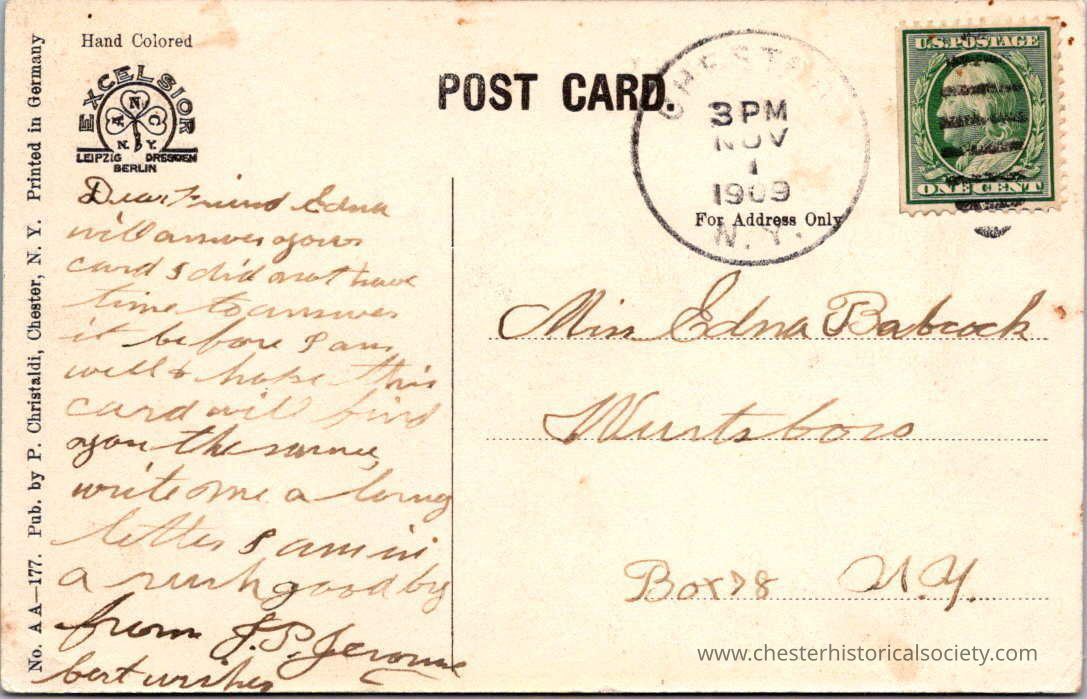 Hand Colored
EXCELSIOR
A N C
N. Y.
LEIPZIG DRESDEN
BERLIN
POST CARD.
CHESTER
3 PM
NOV
1
1909
N.Y.
For Address Only
U.S. POSTAGE
ONE CENT
No. A A—177. Pub. by P. Christaldi, Chester, N. Y. Printed in Germany
Dear Friend Edna
will answer your
card I did not have
time to answer
it before I am
well & hope this
card will find
you the same,
write me a long
letter I am in
a rush good by
from J.P. Jerome
best wishes
Miss Edna Babcock
Wurtsboro
Box 78 N.Y.
www.chesterhistoricalsociety.com